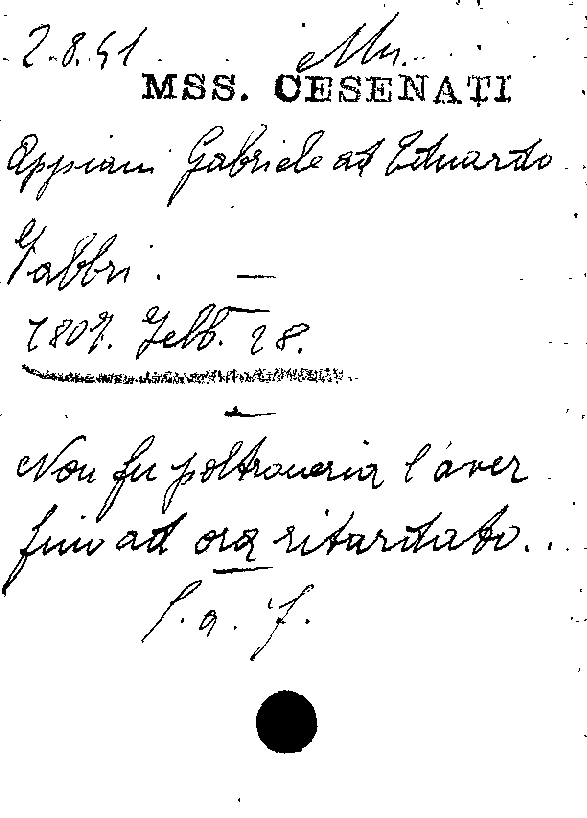 2.8.51 Ms.
MSS. CESENATI
Appiani Gabriele ad Eduardo
Fabbri. —
1807. Febb. 28.
Non fu poltroneria l'aver
fino ad ora ritardato...
l. a. f.